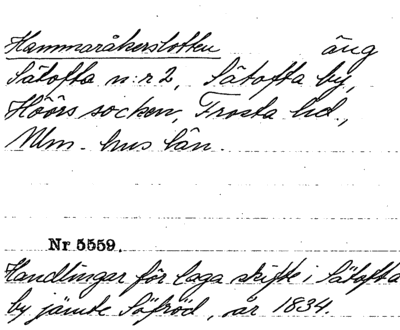 Hammaråkerslotten äng
Sätofta n:r 2, Sätofta by,
Höörs socken, Frosta hd.,
Mlm-hus län.
Nr 5559.
Handlingar för laga skifte i Sätofta
by jämte Söfröd, år 1834.